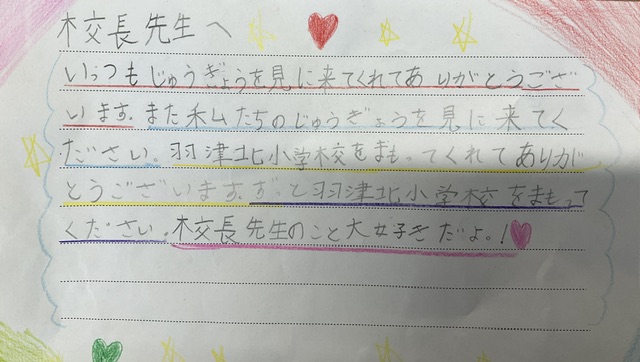 校長先生へ
いつもじゅうぎょうを見に来てくれてありがとうござ
います。また私たちのじゅうぎょうを見に来てく
ださい。羽津北小学校をまもってくれてありが
とうございます。ずっと羽津北小学校をまもって
ください。校長先生のこと大好きだよ。!